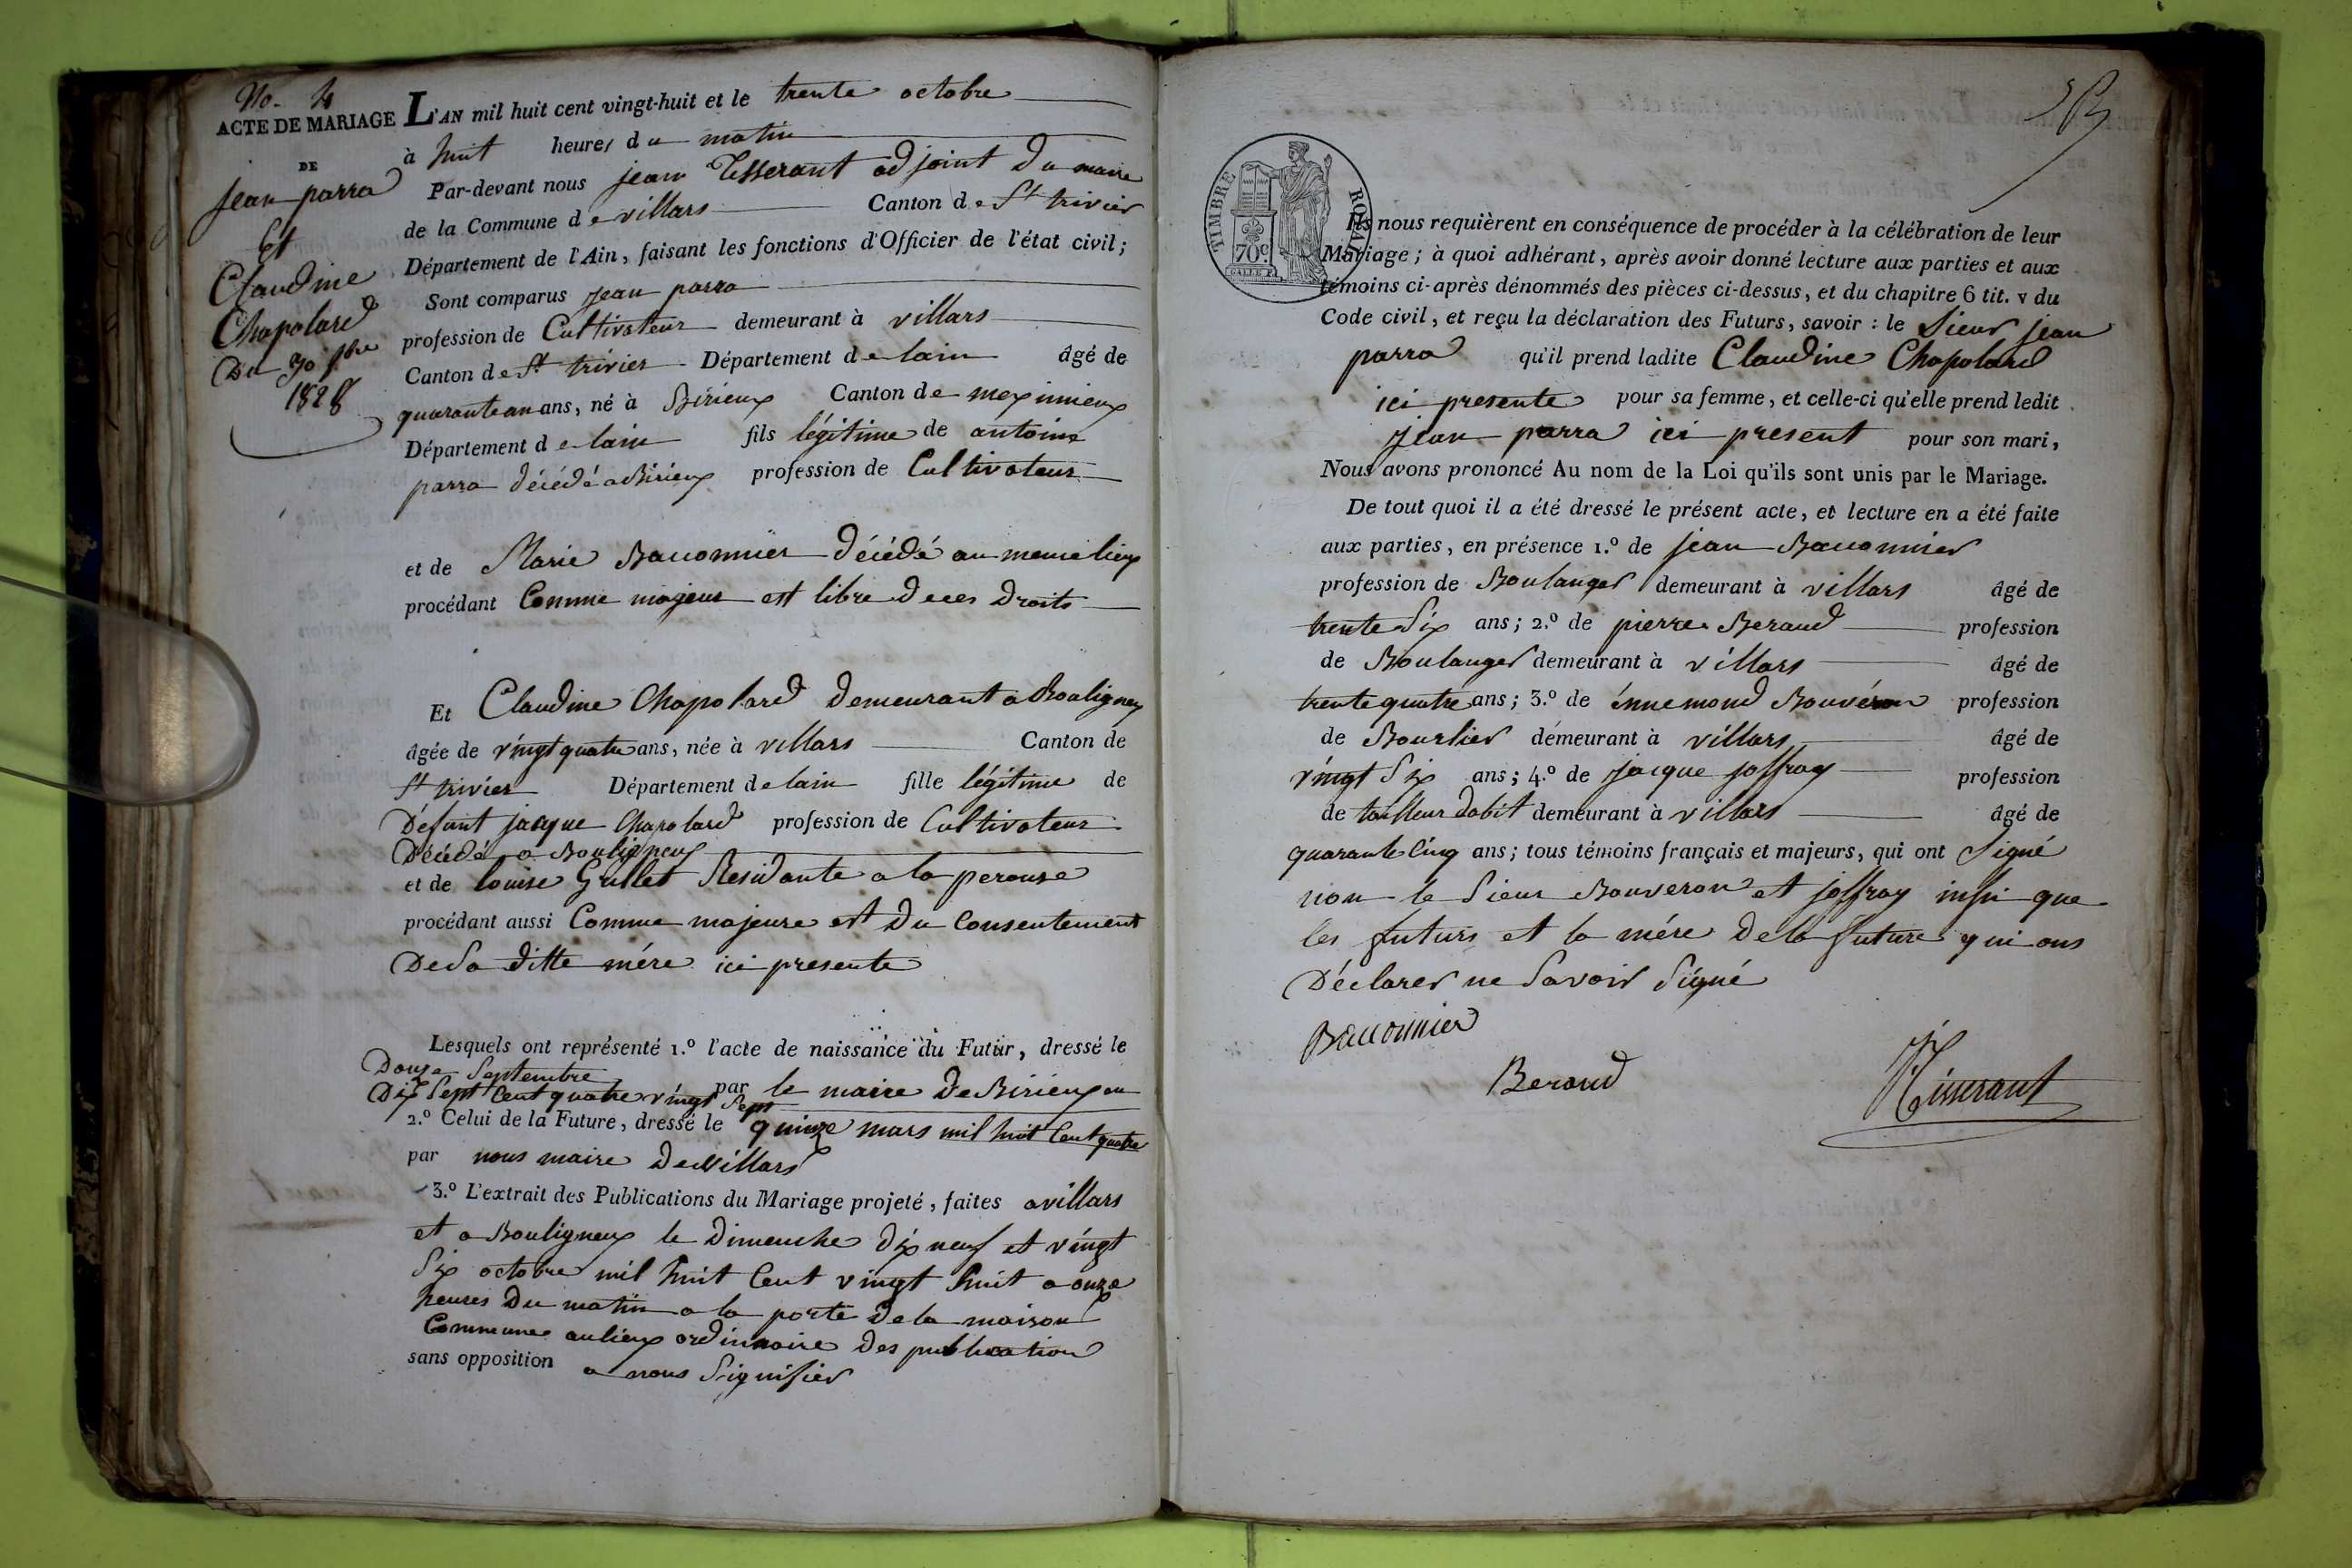 No. 4
ACTE DE MARIAGE
DE
jean parra
Et
Claudine
Chapolard
Du 30 8bre
1828
L'AN mil huit cent vingt-huit et le trente octobre
à huit heures du matin
Par-devant nous jean Tesserant adjoint du maire
de la Commune de villars Canton de St trivier
Département de l'Ain, faisant les fonctions d'Officier de l'état civil;
Sont comparus jean parra
profession de Cultivateur demeurant à villars
Canton de St trivier Département de lain âgé de
quarante an ans, né à Birieux Canton de meximieux
Département de lain fils légitime de antoine
parra décédé a Birieux profession de Cultivateur
et de Marie Bauonnier décédé au meme lieux
procédant Comme majeur est libre de ces Droits
Et Claudine Chapolard demeurant a Bouligney
âgée de vingt quatre ans, née à villars Canton de
St trivier Département de lain fille légitime de
Défunt jacque Chapolard profession de Cultivateur
Décédé a Bouligneux
et de louise Grillet Residante a la perouse
procédant aussi Comme majeure et Du Consentement
De Sa ditte mére ici presente
Lesquels ont représenté 1.º l'acte de naissance du Futur, dressé le
Douze Septembre
Dix Sept Cent quatre vingt Sept par le maire De Birieux en
2.º Celui de la Future, dressé le quinze mars mil huit Cent quatre
par nous maire De villars
3.º L'extrait des Publications du Mariage projeté, faites a villars
et a Bouligneux le Dimenche dix neuf et vingt
Six octobre mil huit Cent vingt huit a onze
heures Du matin a la porte de la maison
Commune au lieux ordinnaire Des publication
sans opposition a nous Signifier
TIMBRE ROYAL
70c
Ils nous requièrent en conséquence de procéder à la célébration de leur
Mariage; à quoi adhérant, après avoir donné lecture aux parties et aux
témoins ci-après dénommés des pièces ci-dessus, et du chapitre 6 tit. v du
Code civil, et reçu la déclaration des Futurs, savoir : le Sieur jean
parra qu'il prend ladite Claudine Chapolard
ici presente pour sa femme, et celle-ci qu'elle prend ledit
jean parra ici present pour son mari,
Nous avons prononcé Au nom de la Loi qu'ils sont unis par le Mariage.
De tout quoi il a été dressé le présent acte, et lecture en a été faite
aux parties, en présence 1.º de jean Bauonnier
profession de Boulanger demeurant à villars âgé de
trente Six ans; 2.º de pierre Beraud profession
de Boulanger demeurant à villars âgé de
trente quatre ans; 3.º de énnemond Bouvéron profession
de Bourlier demeurant à villars âgé de
vingt Six ans; 4.º de jacque joffray profession
de tailleur dabit demeurant à villars âgé de
quarante Cinq ans; tous témoins français et majeurs, qui ont Signé
non le Sieur Bouveron et joffray insin que
les futurs et la mére de la future qui ons
Déclarer ne Savoir Signé
Bauonnier
Beraud
Tisserant